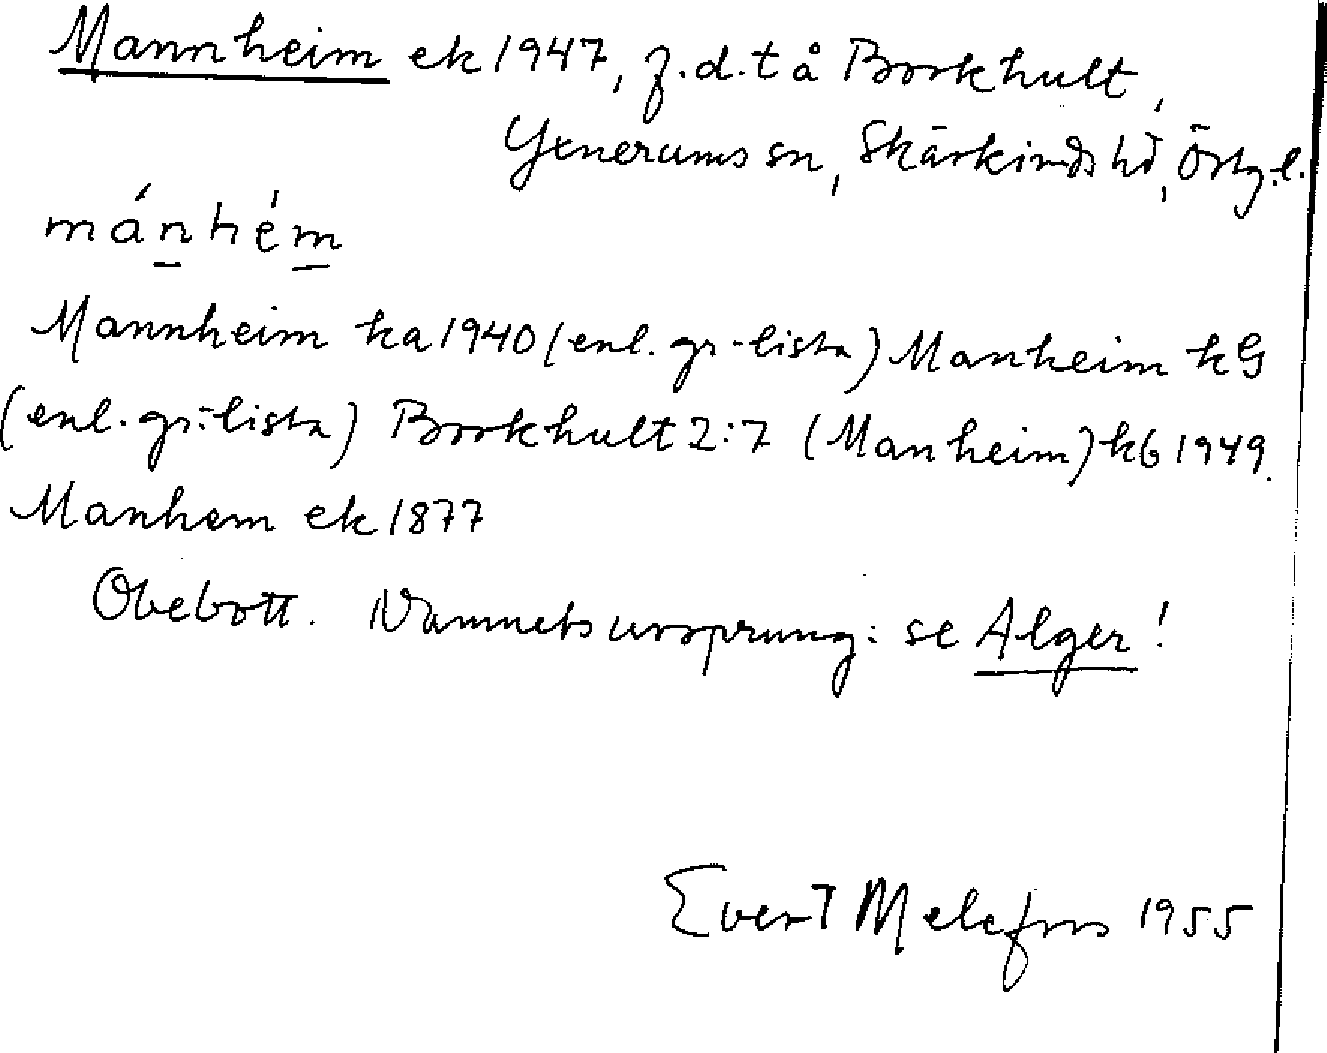 Mannheim ek 1947, f.d. t å Borkhult,
Yxnerums sn, Skärkinds hd, Östg.l.
mánhém
Mannheim ka 1940 (enl. gr-lista) Manheim kG
(enl. gr-lista) Borkhult 2:7 (Manheim) kG 1949.
Manhem ek 1877
Obebott. Namnets ursprung: se Alger!
Evert Melefors 1955